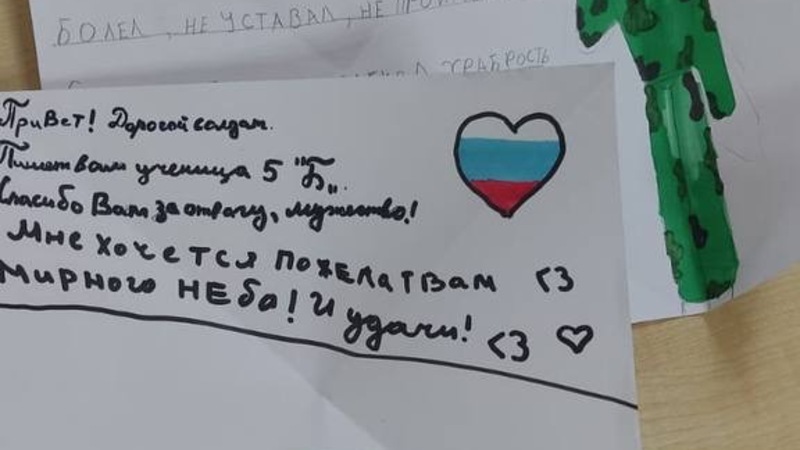 БОЛЕЛ, НЕ УСТАВАЛ, НЕ
ХРАБРОСТЬ
Привет! Дорогой солдат.
Пишет вам ученица 5 "Б„.
Спасибо Вам за отвагу, мужество!
Мне хочется пожелат вам <3
Мирного неба! И удачи! <3